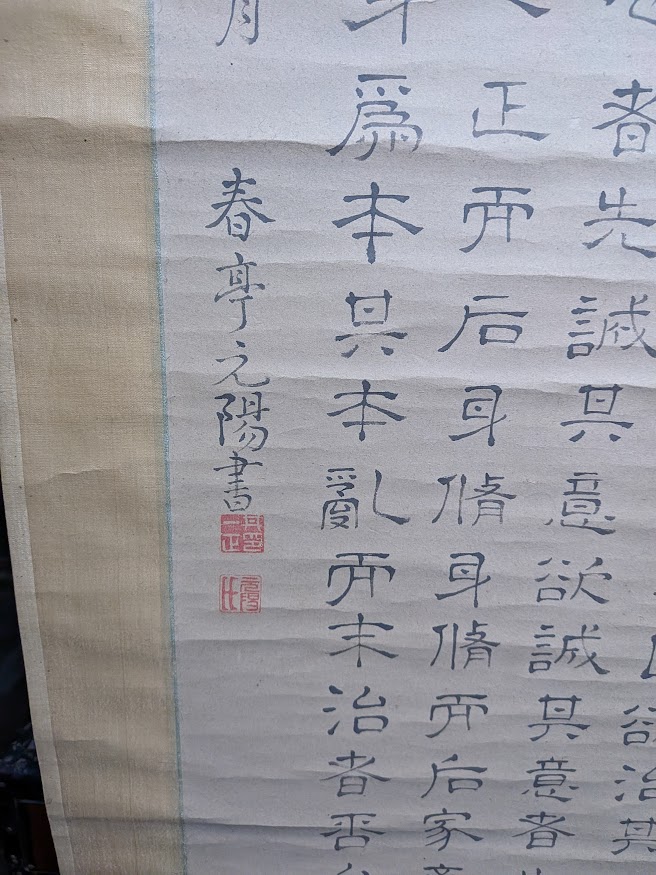 欲治其
者先誠其意欲誠其意者
正而后身脩身脩而后家
爲本其本亂而末治者否
月
春亭元陽書